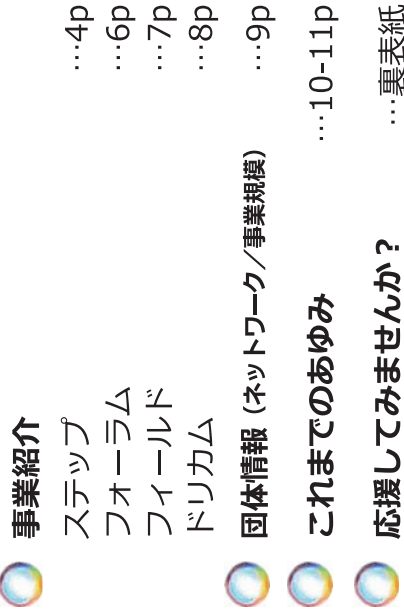 事業紹介
ステップ …4p
フォーラム …6p
フィールド …7p
ドリカム …8p
団体情報（ネットワーク／事業規模） …9p
これまでのあゆみ …10-11p
応援してみませんか？ …裏表紙